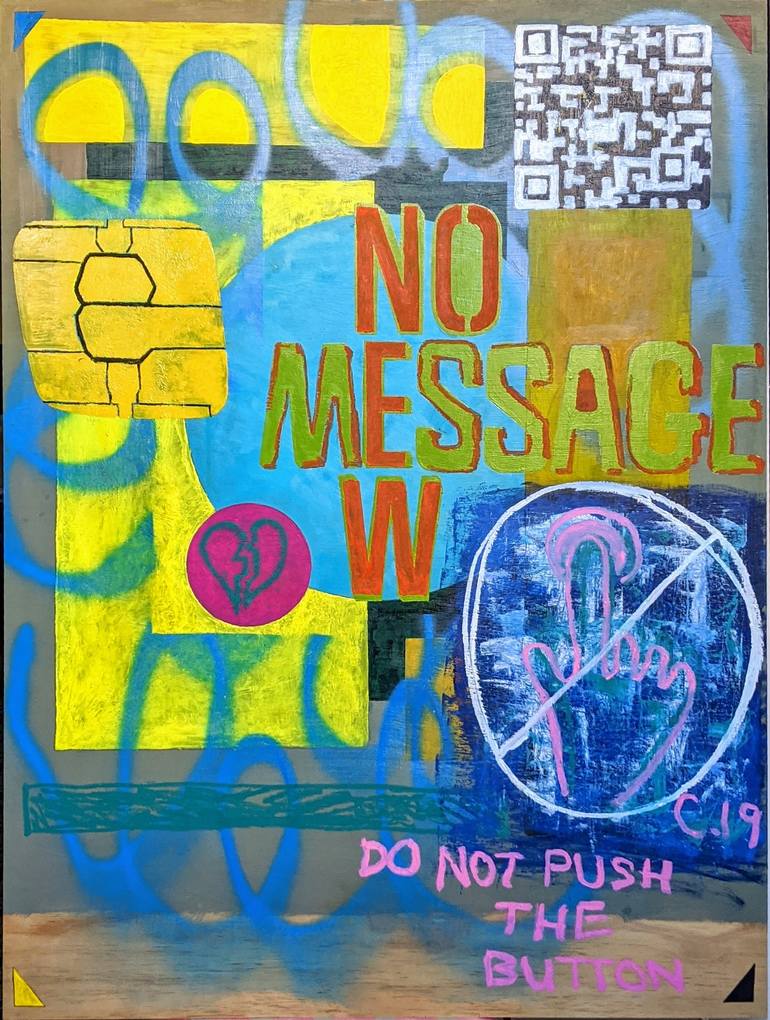 NO
MESSAGE
W
C.19
DO NOT PUSH
THE
BUTTON